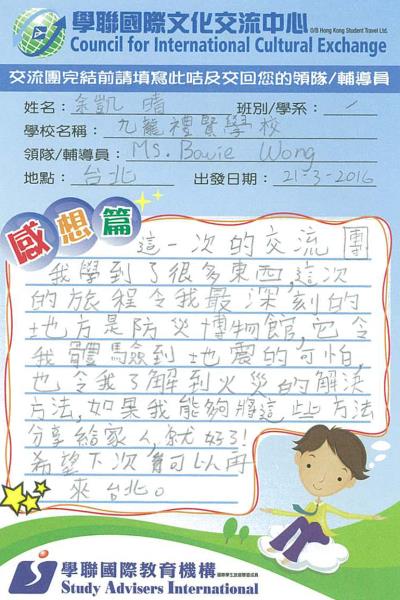 學聯國際文化交流中心 O/B Hong Kong Student Travel Ltd.
Council for International Cultural Exchange
交流團完結前請填寫此咭及交回您的領隊/輔導員
姓名：余凱晴 班別/學系：/
學校名稱：九龍禮賢學校
領隊/輔導員：Ms. Bowie Wong
地點：台北 出發日期：21-3-2016
感想篇
這一次的交流團
我學到了很多東西,這次
的旅程令我最深刻的
地方是防災博物館,它令
我體驗到地震的可怕,
也令我了解到火災的解決
方法,如果我能夠將這些方法
分享給家人,就好了!
希望下次有可以再
來台北。
學聯國際教育機構
Study Advisers International